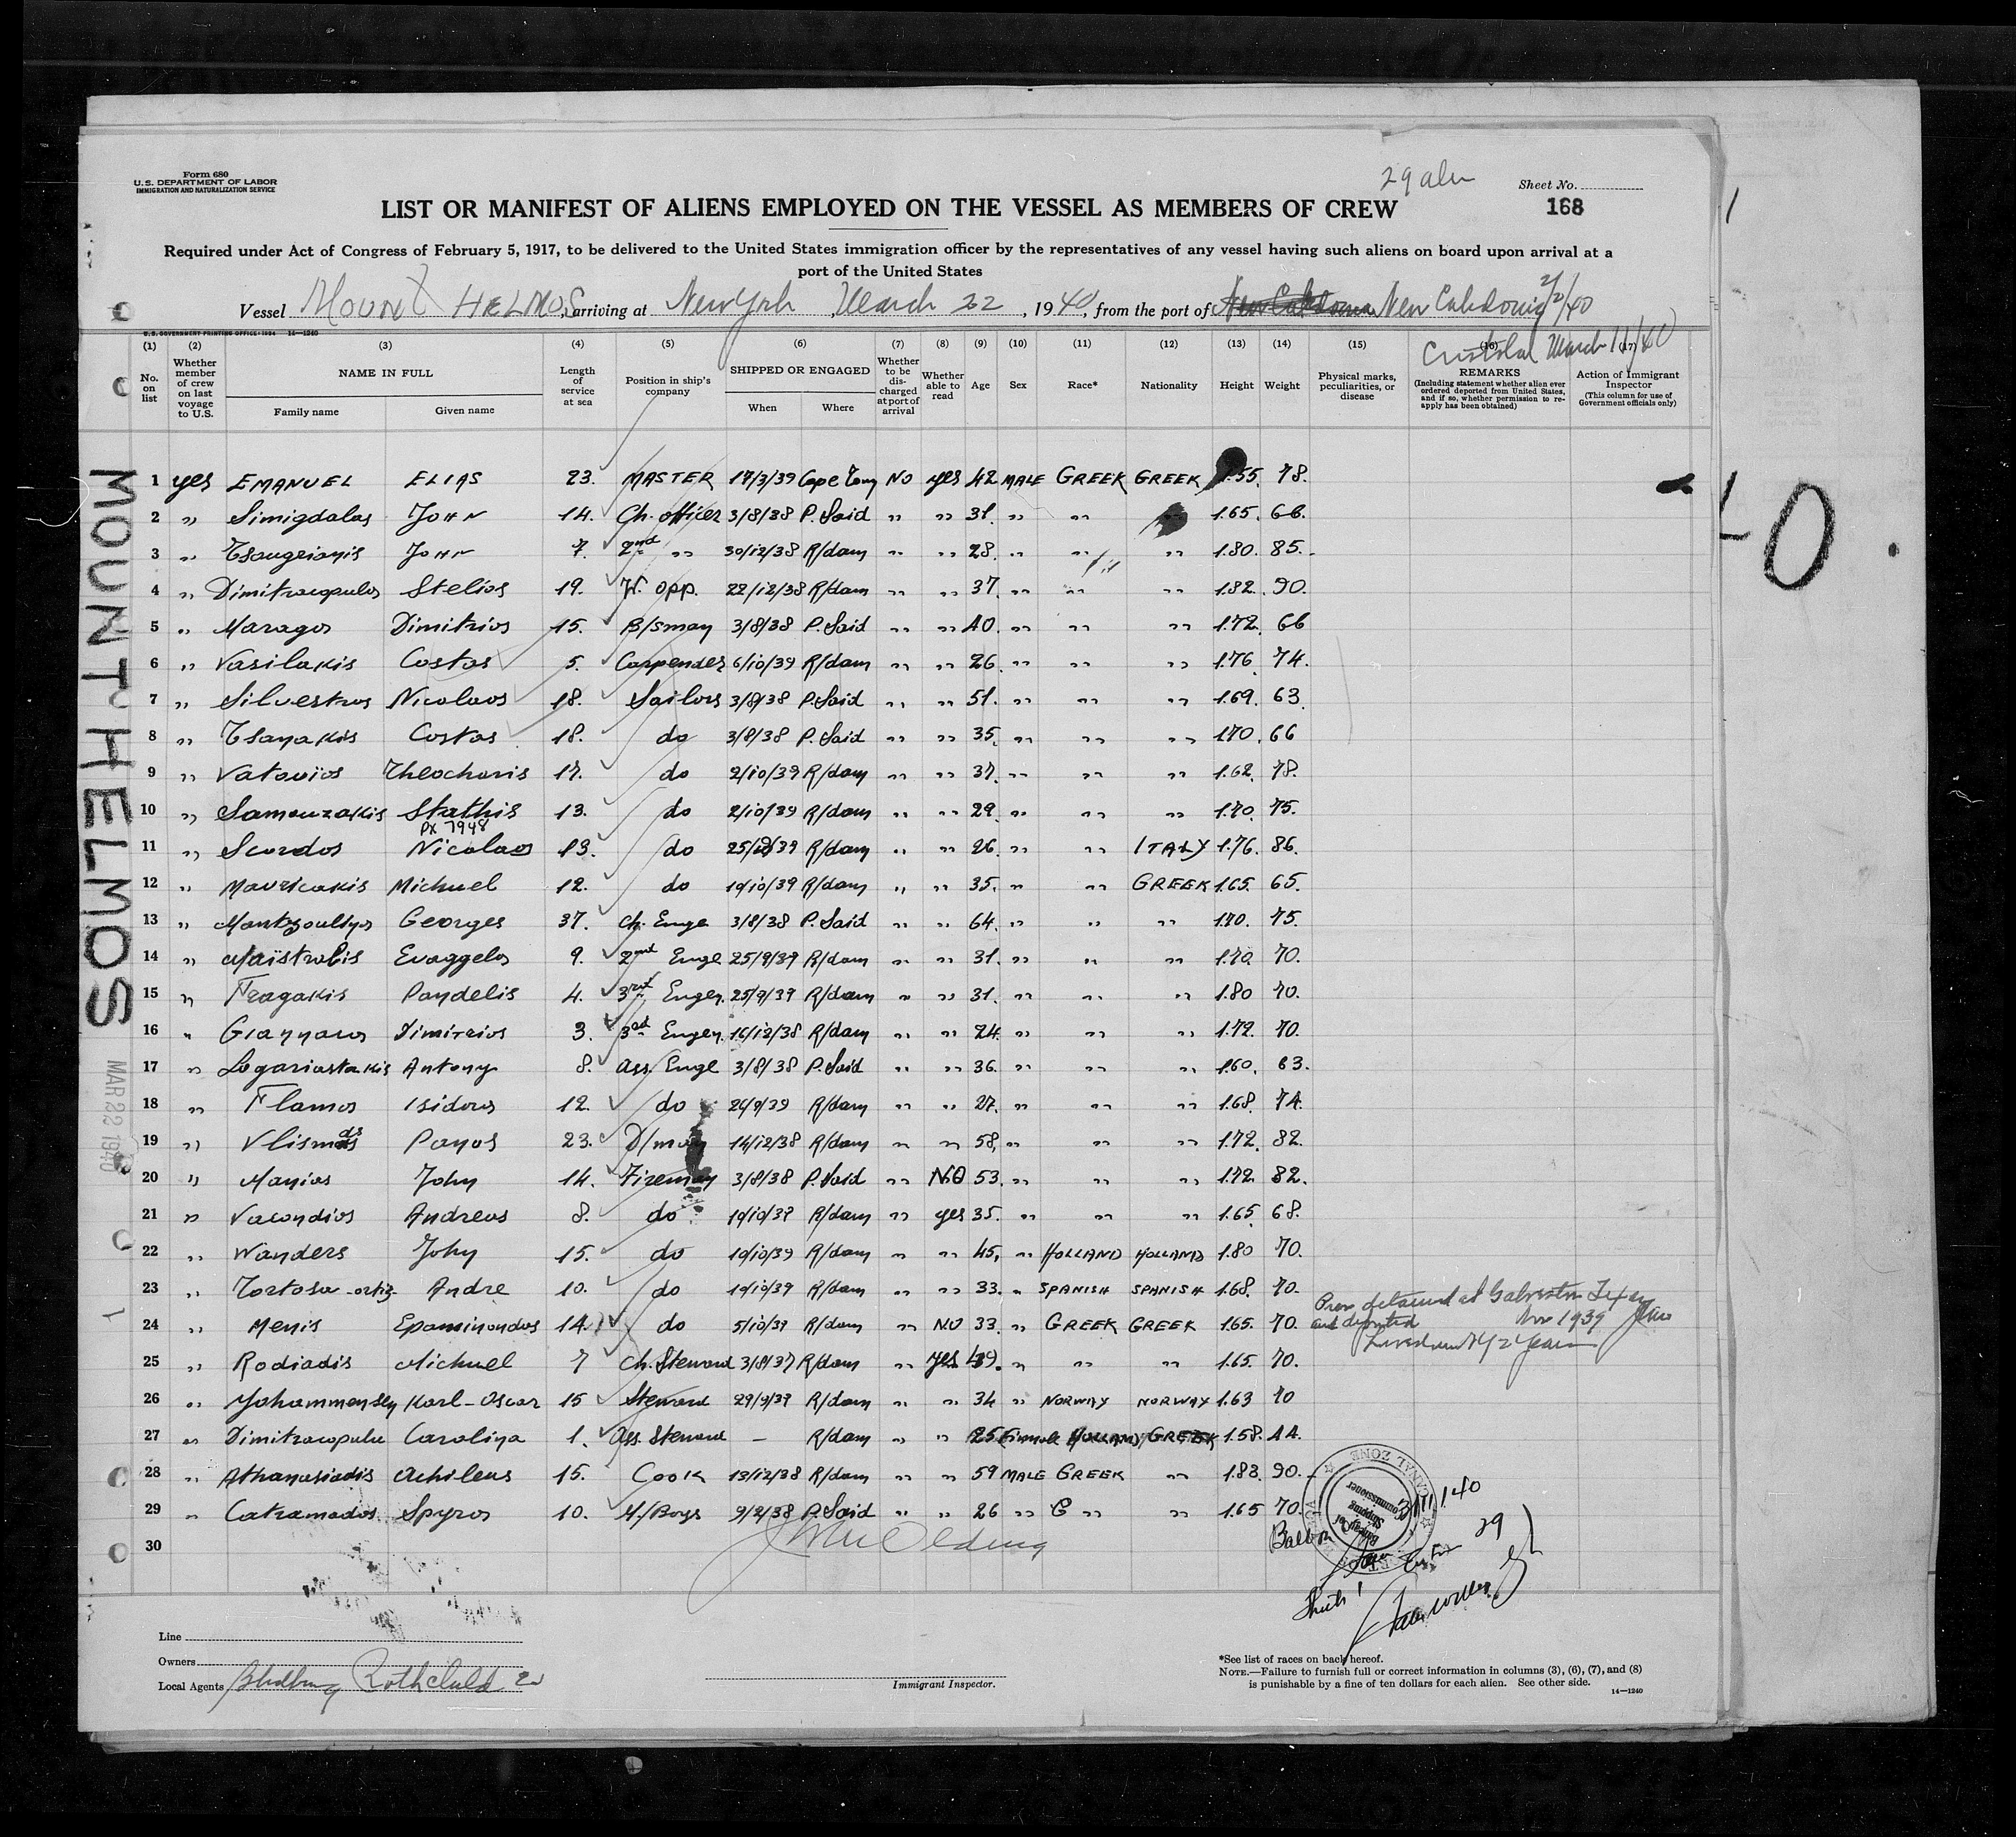 29 alu
Form 680
U.S. DEPARTMENT OF LABOR
IMMIGRATION AND NATURALIZATION SERVICE
Sheet No.
168
LIST OR MANIFEST OF ALIENS EMPLOYED ON THE VESSEL AS MEMBERS OF CREW
Required under Act of Congress of February 5, 1917, to be delivered to the United States immigration officer by the representatives of any vessel having such aliens on board upon arrival at a
port of the United States
Vessel MOUNT HELMOS, arriving at New York March 22, 1940, from the port of New Caledonia New Caledonia 2/2/40
Cristobal March 11/40
U.S. GOVERNMENT PRINTING OFFICE: 1934 14—1240
(1) (2) (3) (4) (5) (6) (7) (8) (9) (10) (11) (12) (13) (14) (15) (16) (17)
No. on list
Whether member of crew on last voyage to U.S.
NAME IN FULL
Family name Given name
Length of service at sea
Position in ship's company
SHIPPED OR ENGAGED
When Where
Whether to be discharged at port of arrival
Whether able to read
Age Sex Race* Nationality Height Weight
Physical marks, peculiarities, or disease
REMARKS
(Including statement whether alien ever ordered deported from United States, and if so, whether permission to re-apply has been obtained)
Action of Immigrant Inspector
(This column for use of Government officials only)
1 yes EMANUEL ELIAS 23. MASTER 17/3/39 Cape Town NO yes 42 MALE GREEK GREEK 1.55. 78.
2 " Simigdalas JOHN 14. Ch. officer 3/8/38 P. Said " " 31. " " " 1.65. 66.
3 " Tsaugrianis JOHN 7. 2nd " 30/12/38 R/dam " " 28. " " " 1.80. 85.
4 " Dimitracopulos Stelios 19. W. opp. 22/12/38 R/dam " " 37. " " " 1.82. 90.
5 " Maragos Dimitrios 15. B/sman 3/8/38 P. Said " " 40. " " " 1.72. 66
6 " Vasilakis Costas 5. Carpender 6/10/39 R/dam " " 26. " " " 1.76 74.
7 " Silvestros Nicolaos 18. Sailors 3/8/38 P. Said " " 51. " " " 1.69. 63.
8 " Tsanakis Costas 18. do 3/8/38 P. Said " " 35. " " " 1.70. 66
9 " Vatouios Theocharis 17. do 2/10/39 R/dam " " 37. " " " 1.62. 78.
10 " Samouzakis Stathis 13. do 2/10/39 R/dam " " 29. " " " 1.70. 75.
PX 7948
11 " Scordos Nicolaos 13. do 25/10/39 R/dam " " 26. " " ITALY 1.76. 86.
12 " Mavricakis Michael 12. do 10/10/39 R/dam " " 35. " " GREEK 1.65. 65.
13 " Mantzoulinos Georges 37. Ch. Enge 3/8/38 P. Said " " 64. " " " 1.70. 75.
14 " Maistralis Evaggelos 9. 2nd Enge 25/9/39 R/dam " " 31. " " " 1.70. 70.
15 " Fragakis Pandelis 4. 3rd Engen. 25/9/39 R/dam " " 31. " " " 1.80 70.
16 " Giannaros Dimitrios 3. 3rd Engen. 16/12/38 R/dam " " 24. " " " 1.72. 70.
17 " Logariastakis Antony 8. Ass. Enge 3/8/38 P. Said " " 36. " " " 1.60. 63.
18 " Flamos Isidoros 12. do 26/9/39 R/dam " " 27. " " " 1.68. 74.
19 " Vlismas Panos 23. D/man 14/12/38 R/dam " " 58. " " " 1.72. 82.
20 " Manias John 14. Fireman 3/8/38 P. Said " NO 53. " " " 1.72. 82.
21 " Vacondios Andreas 8. do 10/10/39 R/dam " yes 35. " " " 1.65. 68.
22 " Wanders John 15. do 10/10/39 R/dam " " 45. " HOLLAND HOLLAND 1.80 70.
23 " Tortosa-ortiz Andre 10. do 10/10/39 R/dam " " 33. " SPANISH SPANISH 1.68. 70.
24 " Menis Epaminondas 14. do 5/10/39 R/dam " NO 33. " GREEK GREEK 1.65. 70.
Prev detained at Galveston Texas
and deported Nov 1939
25 " Rodiadis Michael 7 Ch. Steward 3/8/37 R/dam " yes 49. " " " 1.65. 70.
26 " Johammensen Karl-Oscar 15 Steward 29/9/39 R/dam " " 34 " NORWAY NORWAY 1.63 70
27 " Dimitracopulu Carolina 1. Ass. Steward — R/dam " " 25 Female HOLLAND GREEK 1.58. 44.
28 " Athanasiadis Achileus 15. Cook 13/12/38 R/dam " " 59 MALE GREEK " 1.83. 90.
29 " Catramados Spyros 10. M/Boys 9/2/38 P. Said " " 26 " G " " 1.65 70.
30
MOUNT HELMOS
MAR 22 1940
CANAL ZONE
Shipping Commissioner
Balboa
29
Line
Owners
Local Agents Rothchild
Immigrant Inspector.
*See list of races on back hereof.
NOTE.—Failure to furnish full or correct information in columns (3), (6), (7), and (8)
is punishable by a fine of ten dollars for each alien. See other side.
14—1240